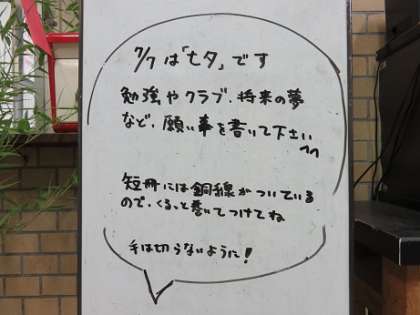 7/7は「七夕」です
勉強やクラブ、将来の夢
など、願い事を書いて下さい^^
短冊には銅線がついている
ので、くるっと巻いてつけてね
手は切らないように!